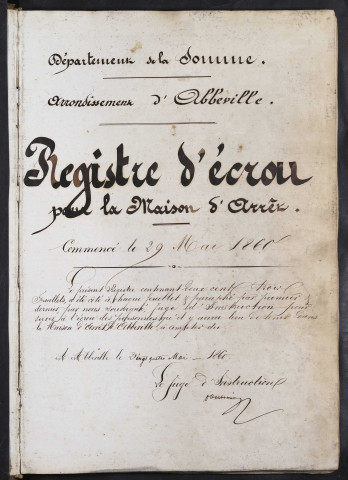 Département de la Somme.
Arrondissement d'Abbeville.
Registre d'écrou
pour la Maison d'Arrêt.
Commencé le 29 Mai 1860
Le présent Registre contenant deux cent trois
feuillets, a été coté à chaque feuillet & paraphé par premier &
dernier par nous, Juge d'Instruction, pour
servir à l'écrou des prisonniers
la Maison d'arrêt d'Abbeville
A Abbeville le vingt quatre Mai 1860
Le Juge d'Instruction